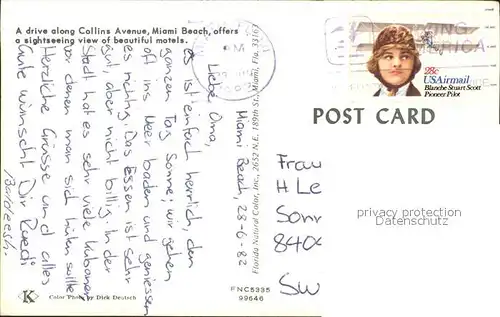 A drive along Collins Avenue, Miami Beach, offers
a sightseeing view of beautiful motels.
PM
28c
USAirmail
Blanche Stuart Scott
Pioneer Pilot
POST CARD
Miami Beach, 28-6-82
Liebe Oma,
es ist einfach herrlich, den
ganzen Tag Sonne; wir gehen
oft ins Meer baden und geniessen
es richtig. Das Essen ist sehr
gut, aber nicht billig. In der
Stadt hat es sehr viele Kubaner
vor denen man sich hüten sollte
Herzliche Grüsse und alles
Gute wünscht Dir Ruedi
Florida Natural Color, Inc., 2652 N.E. 189th St., Miami, Fla. 33163
Frau
H Le
Sonn
840
SW
privacy protection
Datenschutz
K
Color Photo by Dick Deutsch
FNC5335
99646